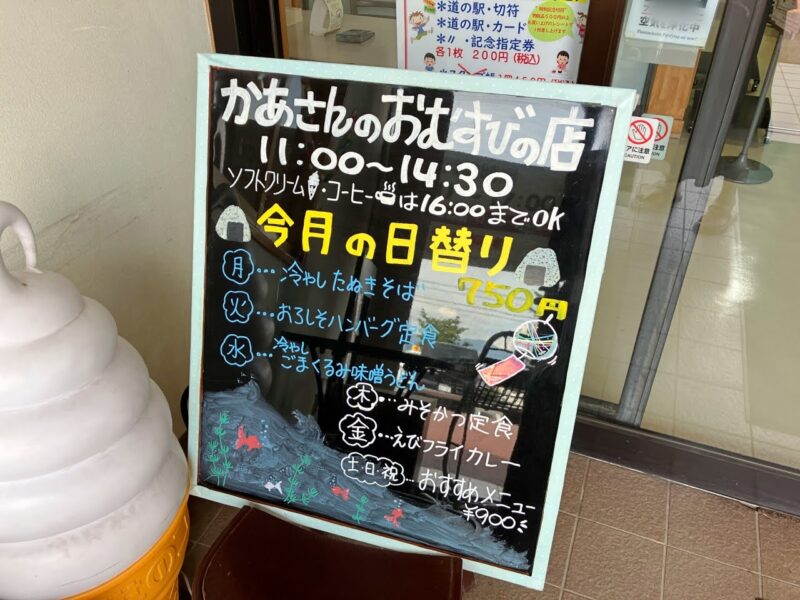 *道の駅・切符
*道の駅・カード
*〃・記念指定券
各1枚 200円(税込)
かあさんのおむすびの店
11:00~14:30
ソフトクリーム・コーヒーは16:00までOK
今月の日替り
750円
月…冷やしたぬきそば
火…おろしそハンバーグ定食
水…冷やしごまくるみ味噌うどん
木…みそかつ定食
金…えびフライカレー
土日祝…おすすめメニュー
¥900
ドアに注意
CAUTION
空気を浄化中